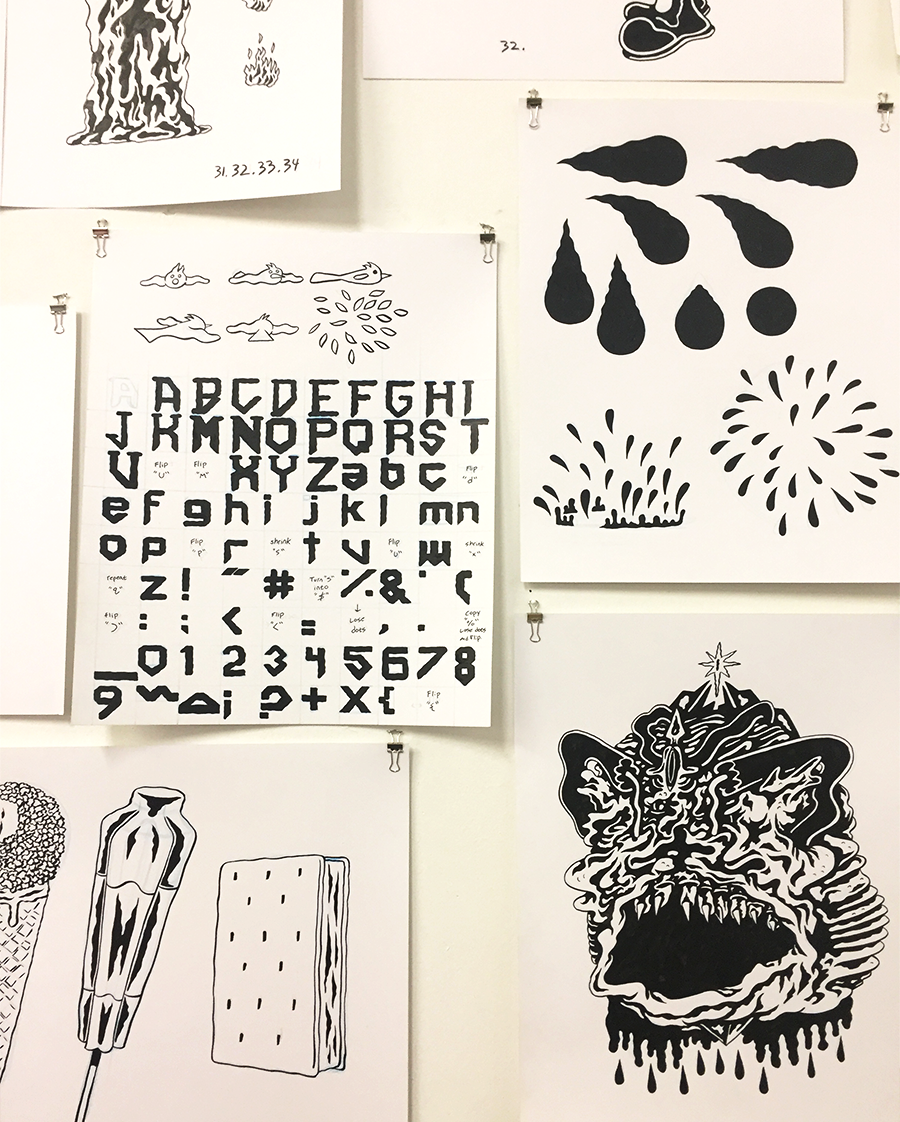 32.
31.32.33.34
A A B C D E F G H I
J K M N O P Q R S T
U Flip "U" Flip "M" X Y Z a b c Flip "d"
e f g h i j k l m n
o p Flip "p" r shrink "s" t v Flip "U" w shrink "x"
repeat "q" z ! " # Turn "S" into "$" % & ' (
flip ")" : ; < Flip "<" = Lose dots , . Copy "%" Lose dots and Flip
_ 0 1 2 3 4 5 6 7 8
9 ~ ¡ ? + X { Flip "{"